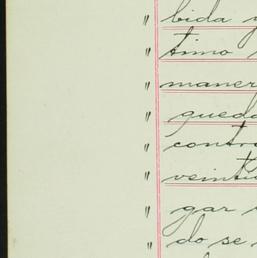 " bida y
" timo
" maner
" queda
" contra
" veinti
" gar
" do se